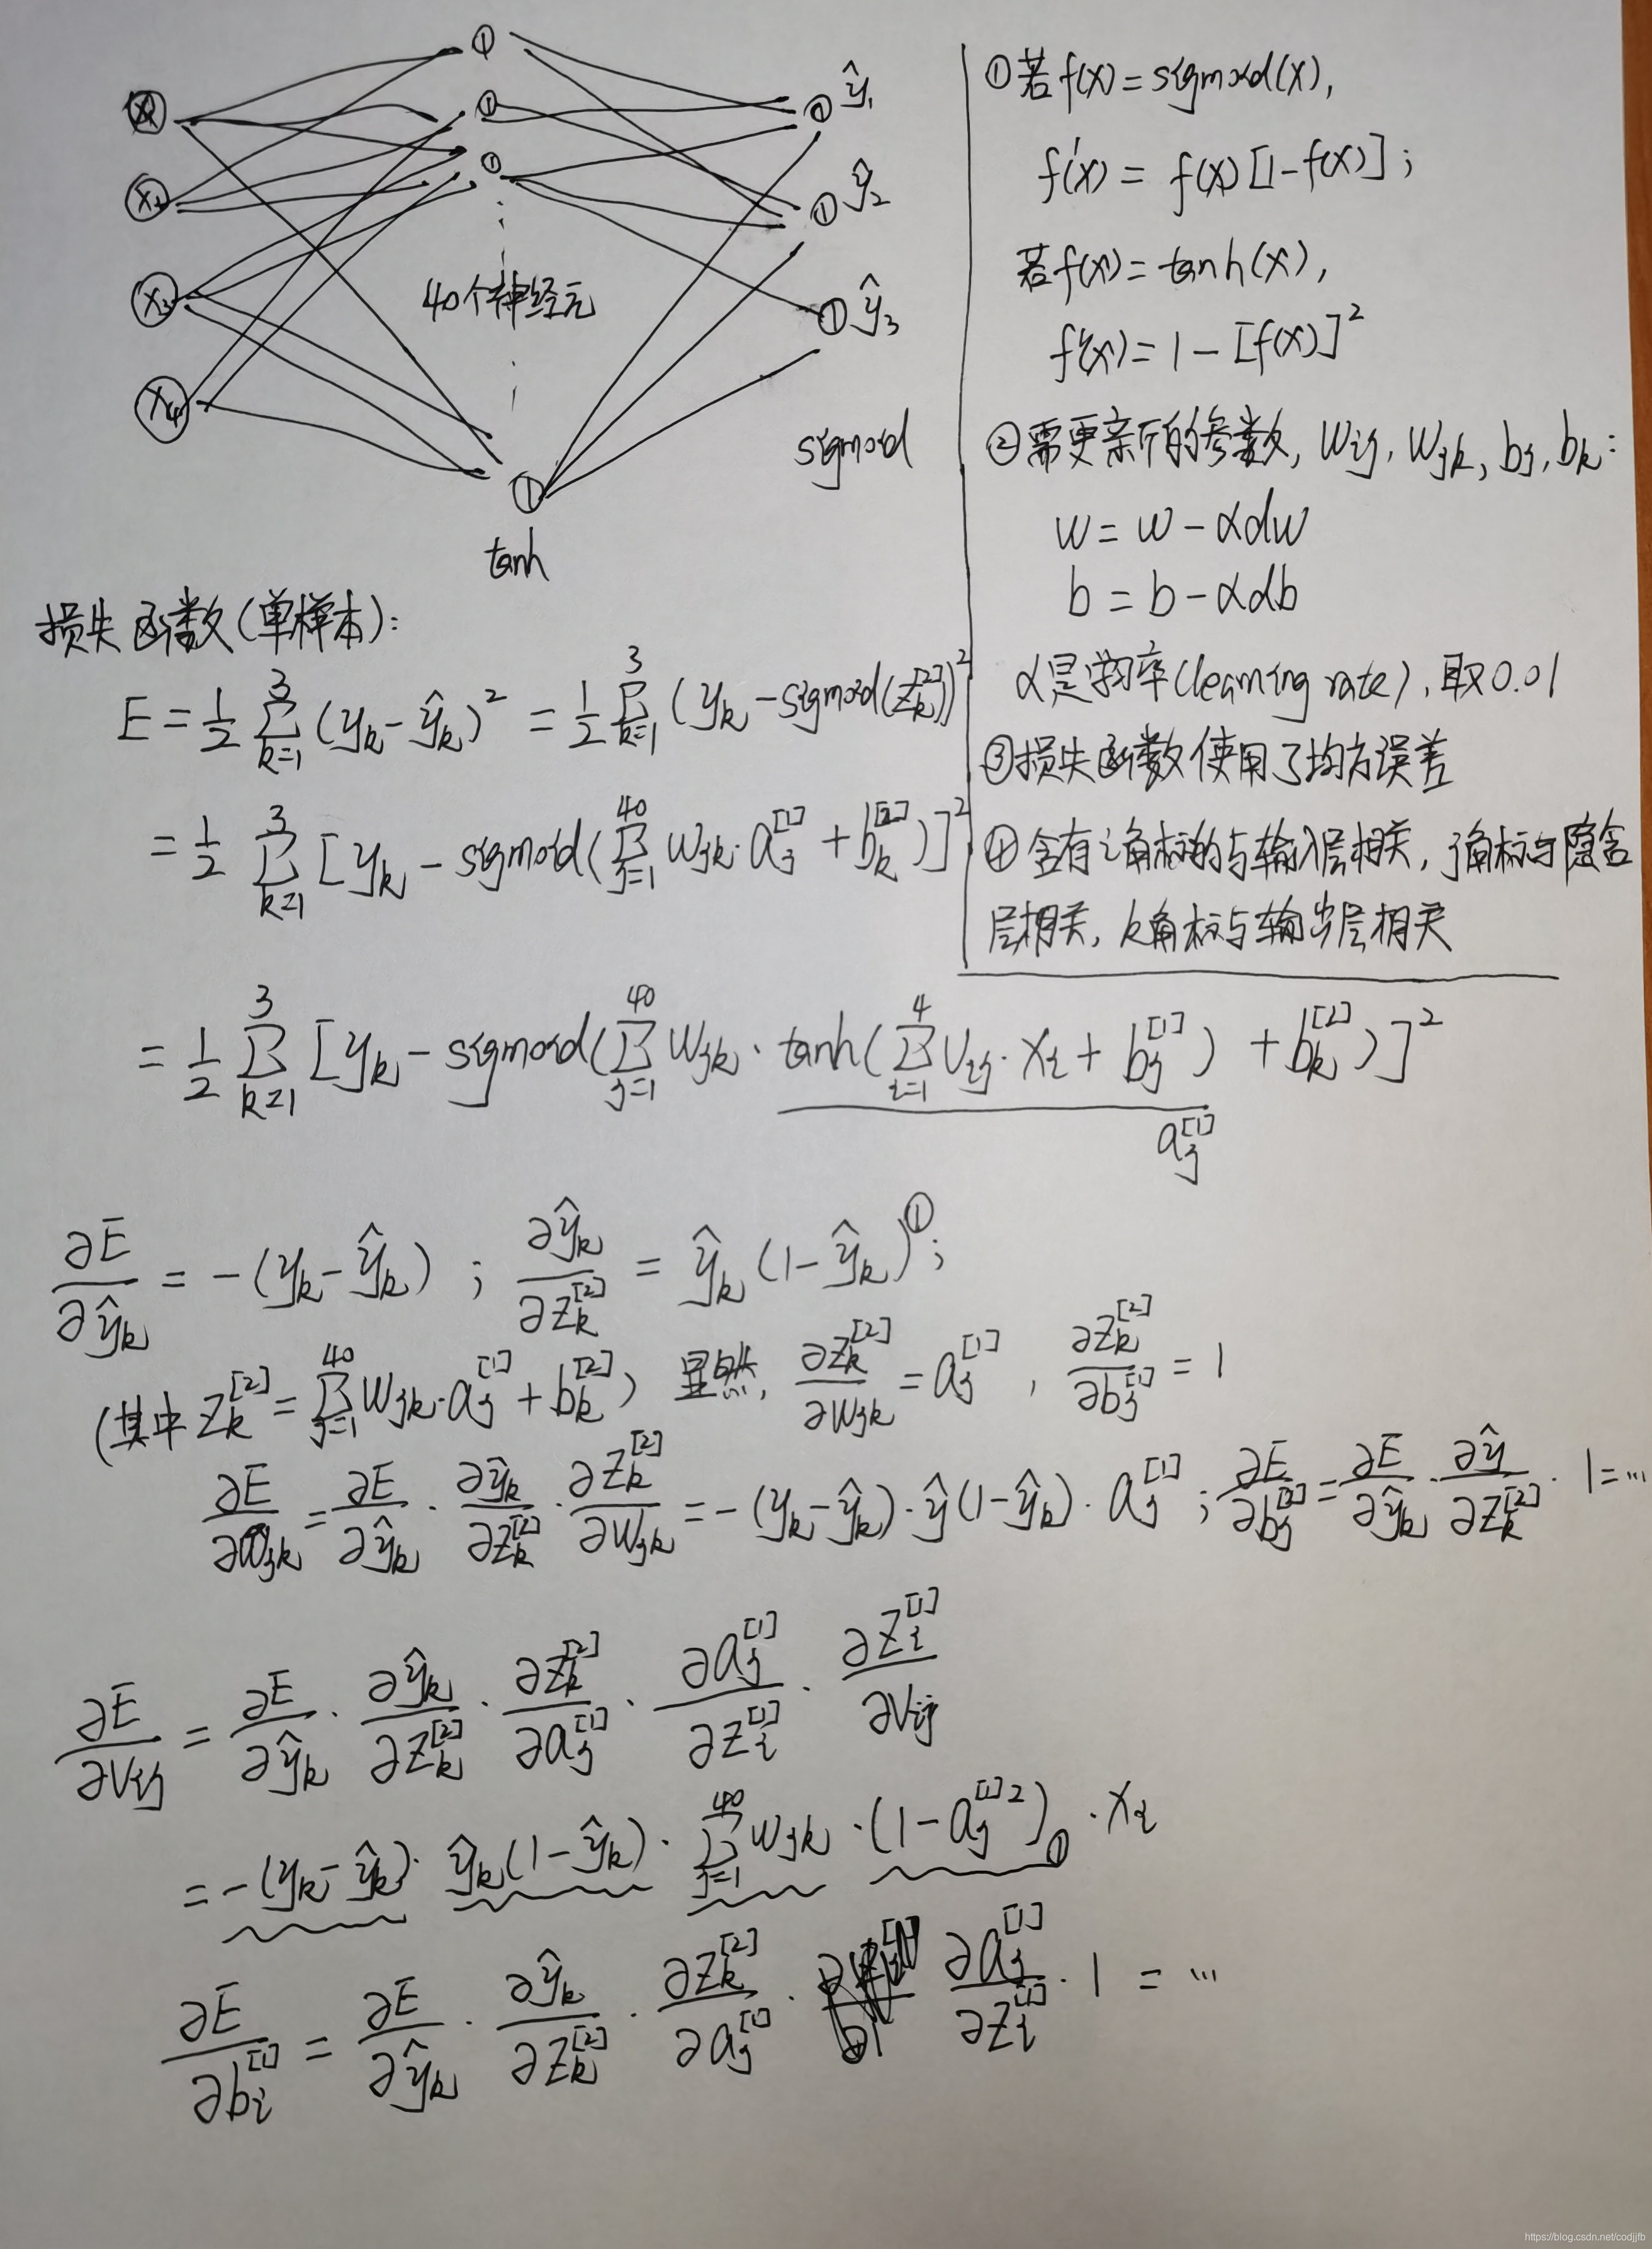 x₁
x₂
x₃
x₄
40个神经元
ŷ₁
ŷ₂
ŷ₃
sigmoid
tanh
①若f(x)=sigmoid(x),
f'(x)=f(x)[1-f(x)];
若f(x)=tanh(x),
f'(x)=1-[f(x)]²
②需更新的参数, wij, wjk, bj, bk:
w=w-αdw
b=b-αdb
α是学习率(learning rate), 取0.01
③损失函数使用了均方误差
④含有i角标的与输入层相关, j角标与隐含
层相关, k角标与输出层相关
损失函数(单样本):
E = 1/2 Σ(k=1→3) (yk-ŷk)² = 1/2 Σ(k=1→3) (yk-sigmoid(zk^[2]))²
= 1/2 Σ(k=1→3) [yk-sigmoid(Σ(j=1→40) wjk·aj^[1]+bk^[2])]²
= 1/2 Σ(k=1→3) [yk-sigmoid(Σ(j=1→40) wjk·tanh(Σ(i=1→4) vij·xi+bj^[1])+bk^[2])]²
aj^[1]
∂E/∂ŷk = -(yk-ŷk) ; ∂ŷk/∂zk^[2] = ŷk(1-ŷk)^①;
(其中 zk^[2] = Σ(j=1→40) wjk·aj^[1]+bk^[2]) 显然, ∂zk^[2]/∂wjk = aj^[1], ∂zk^[2]/∂bj^[1] = 1
∂E/∂wjk = ∂E/∂ŷk · ∂ŷk/∂zk^[2] · ∂zk^[2]/∂wjk = -(yk-ŷk)·ŷ(1-ŷk)·aj^[1] ; ∂E/∂bj^[2] = ∂E/∂ŷk · ∂ŷ/∂zk^[2] · 1=…
∂E/∂vij = ∂E/∂ŷk · ∂ŷk/∂zk^[2] · ∂zk^[2]/∂aj^[1] · ∂aj^[1]/∂zi^[1] · ∂zi^[1]/∂vij
= -(yk-ŷk)·ŷk(1-ŷk)·Σ(j=1→40) wjk·(1-aj^[1]²)①·xi
∂E/∂bi^[1] = ∂E/∂ŷk · ∂ŷk/∂zk^[2] · ∂zk^[2]/∂aj^[1] · ∂aj^[1]/∂zi^[1] · 1 = …
https://blog.csdn.net/codjjfb